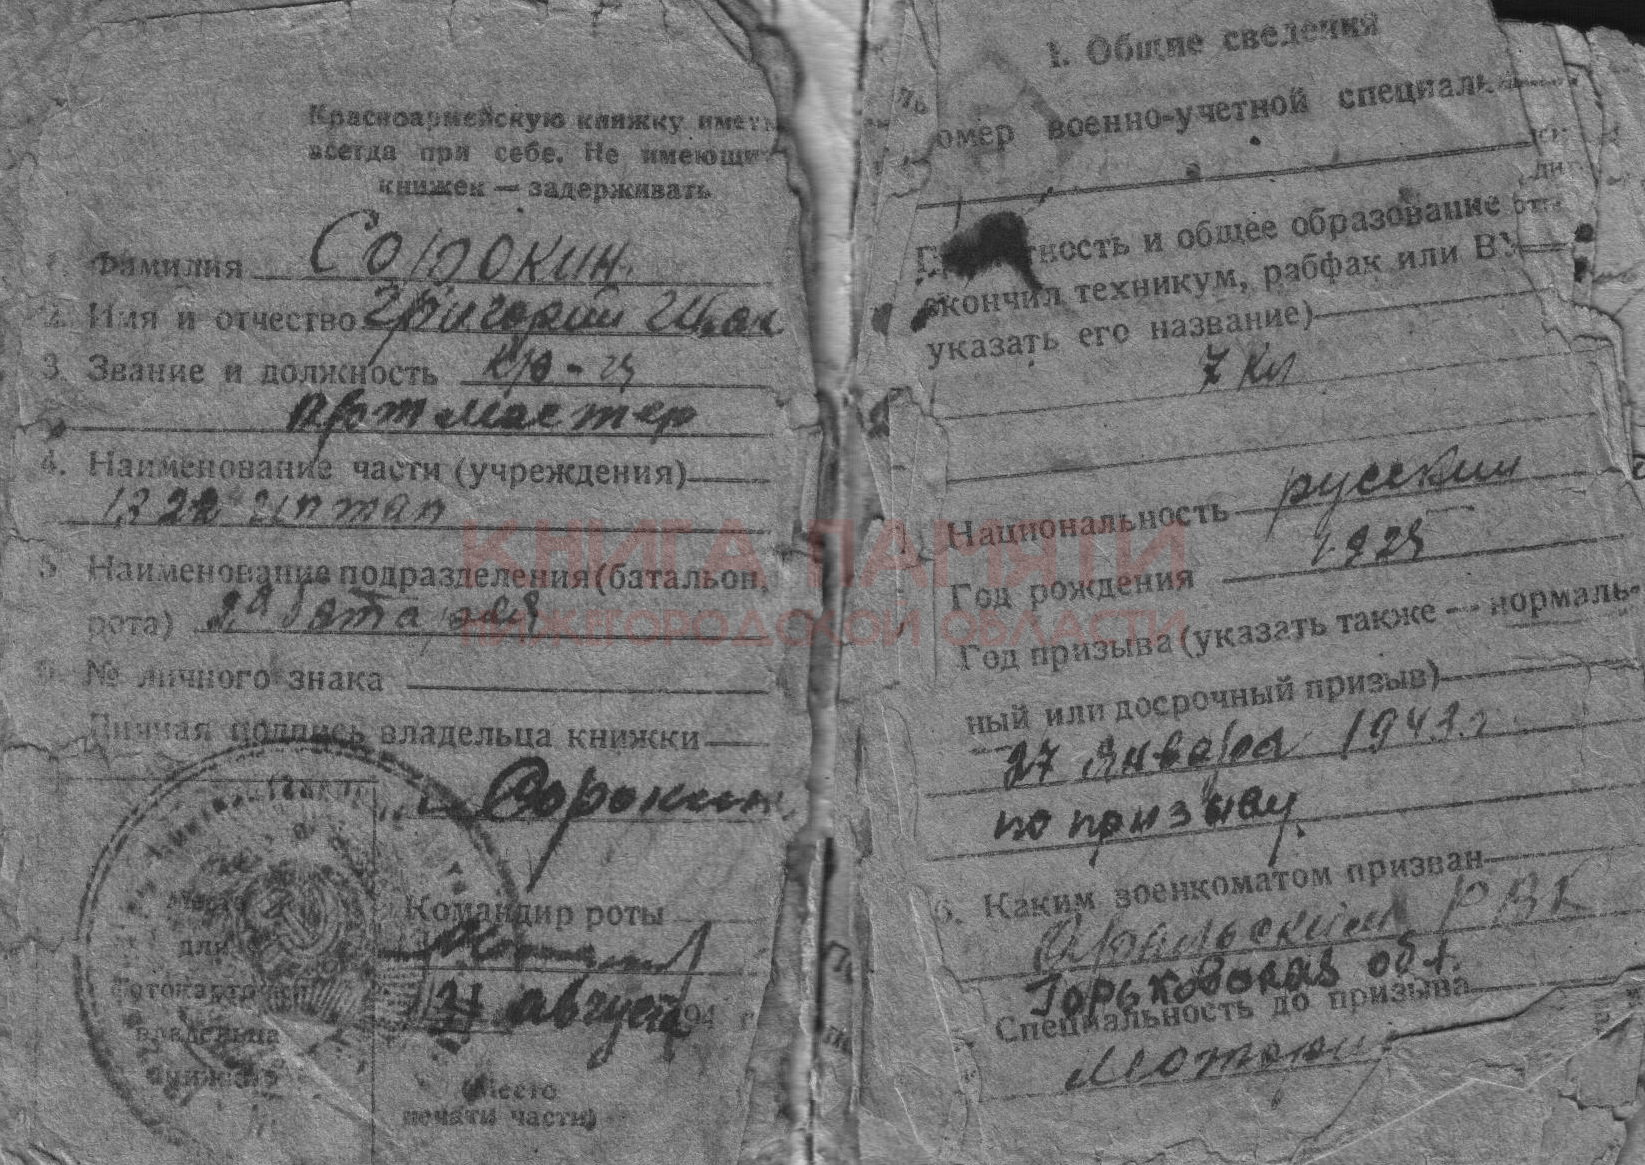 Красноармейскую книжку иметь
всегда при себе. Не имеющих
книжек — задерживать
1. Фамилия Сорокин
2. Имя и отчество Григорий
3. Звание и должность кр-ц
артмастер
4. Наименование части (учреждения)
1322 иптап
5. Наименование подразделения (батальон,
рота) 2я батарея
6. № личного знака
Личная подпись владельца книжки
Сорокин
Место
для
фотокарточки
владельца
книжки
Командир роты
21 августа 194 г
(Место
печати части)
1. Общие сведения
омер военно-учетной специаль
ность и общее образование
окончил техникум, рабфак или ВУ
указать его название)
7 кл
Национальность русский
Год рождения 1925
Год призыва (указать также — нормаль-
ный или досрочный призыв)
27 января 1943 г
по призыву.
6. Каким военкоматом призван
РВК
Горьковская обл.
Специальность до призыва
КНИГА ПАМЯТИ
НИЖЕГОРОДСКОЙ ОБЛАСТИ